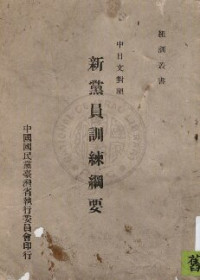 組訓叢書
中日文對照
新黨員訓練綱要
中國國民黨臺灣省執行委員會印行
舊